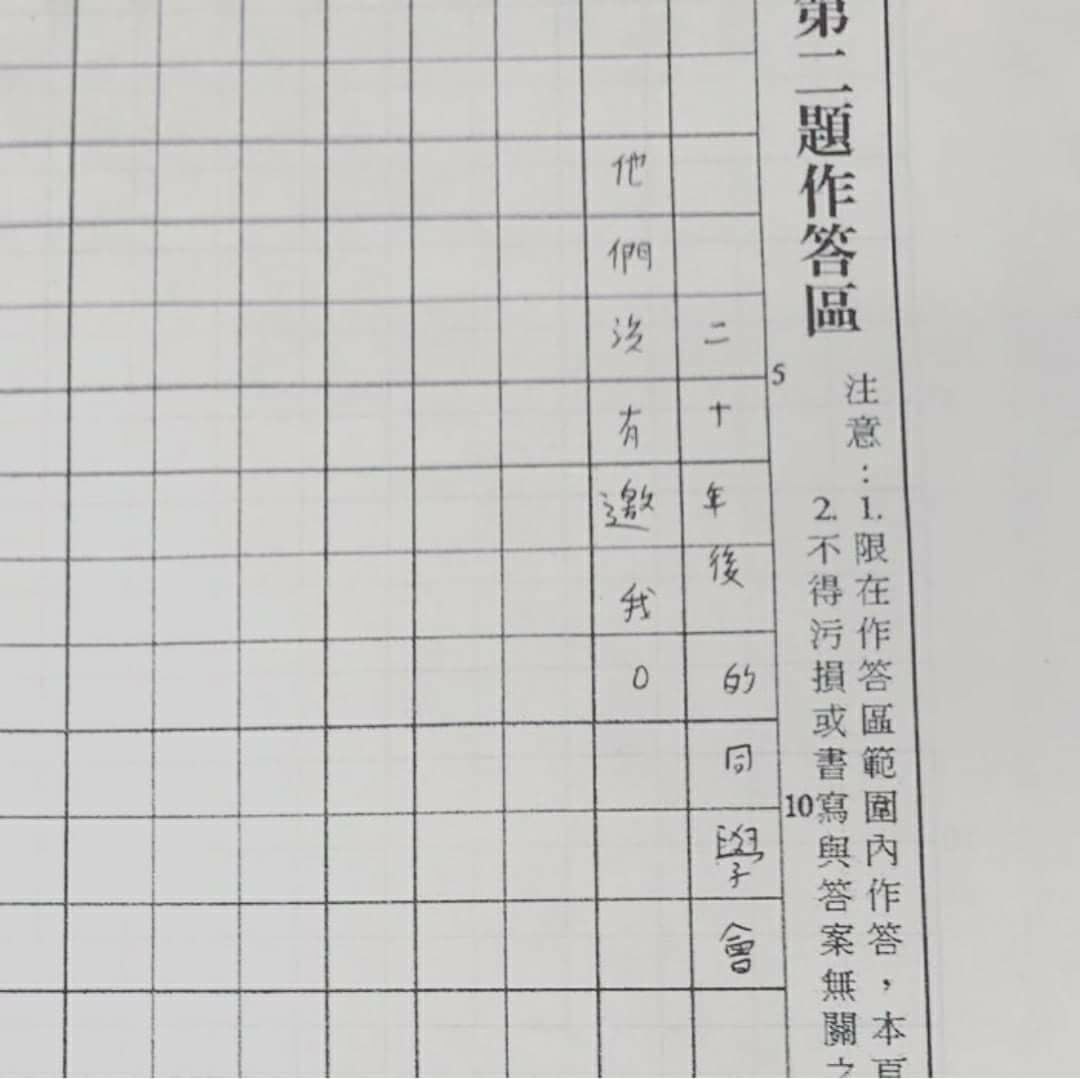 第二題作答區
注意：1.限在作答區範圍內作答，本頁
2.不得污損或書寫與答案無關之
5
10
二十年後的同學會
他們沒有邀我。